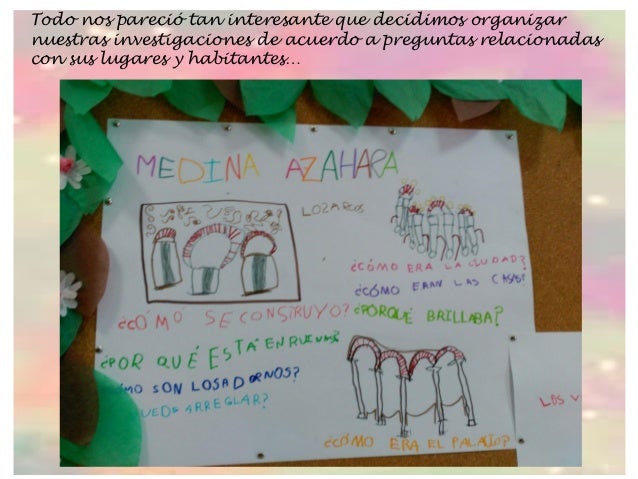 Todo nos pareció tan interesante que decidimos organizar
nuestras investigaciones de acuerdo a preguntas relacionadas
con sus lugares y habitantes...
MEDINA AZAHARA
LOZARCOS
¿CÓMO ERA LA CIUDAD?
¿CÓMO ERAN LAS CASAS?
¿CÓMO SE CONSTRUYO?
¿PORQUÉ BRILLABA?
¿POR QUÉ ESTÁ EN RUINAS?
MO SON LOS ADORNOS?
UEDE ARREGLAR?
¿CÓMO ERA EL PALACIO?
LOS V